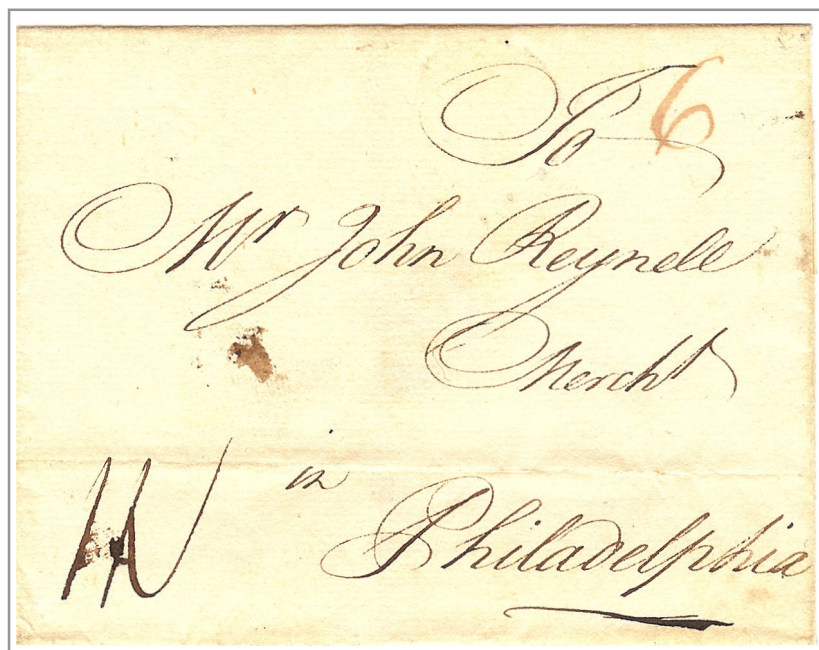 To 6
Mr John Reynell
Mercht
in
Philadelphia